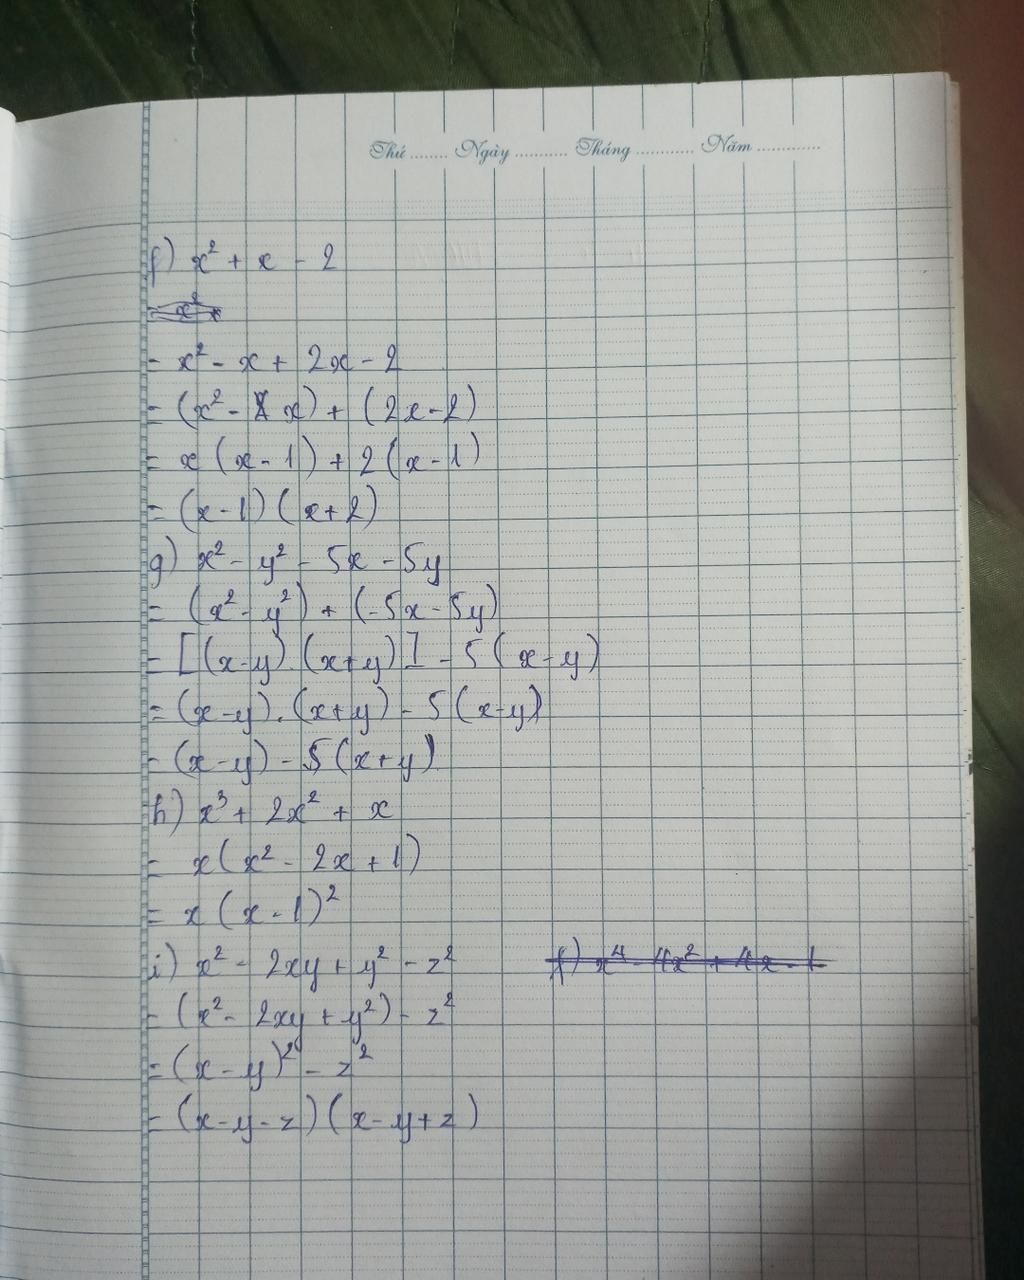 Thứ ........ Ngày ........... Tháng ............ Năm .............
f) x² + x - 2
= x²
= x² - x + 2x - 2
= (x² - x) + (2x - 2)
= x (x - 1) + 2 (x - 1)
= (x - 1) (x + 2)
g) x² - y² - 5x - 5y
= (x² - y²) + (-5x - 5y)
= [(x - y) . (x + y)] - 5 (x - y)
= (x - y) . (x + y) - 5 (x - y)
= (x - y) - 5 (x + y)
h) x³ + 2x² + x
= x (x² - 2x + 1)
= x (x - 1)²
i) x² - 2xy + y² - z² f) x⁴ - 4x² + 4x - 1
= (x² - 2xy + y²) - z²
= (x - y)² - z²
= (x - y - z) (x - y + z)